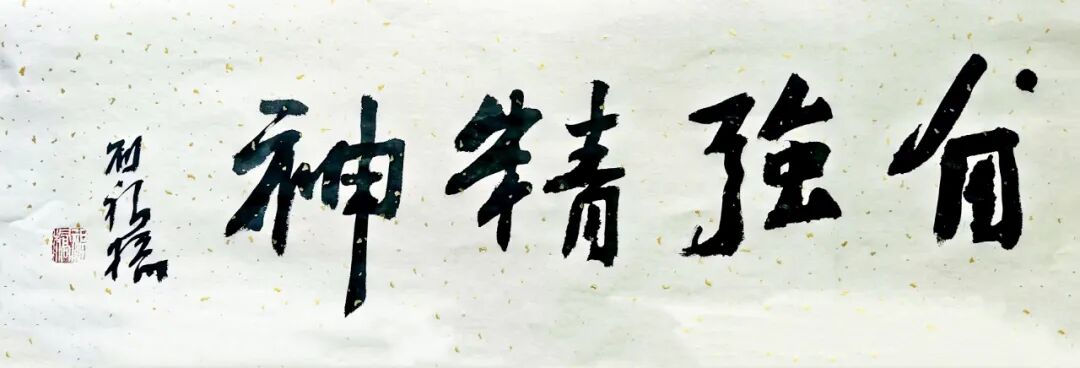 自強精神